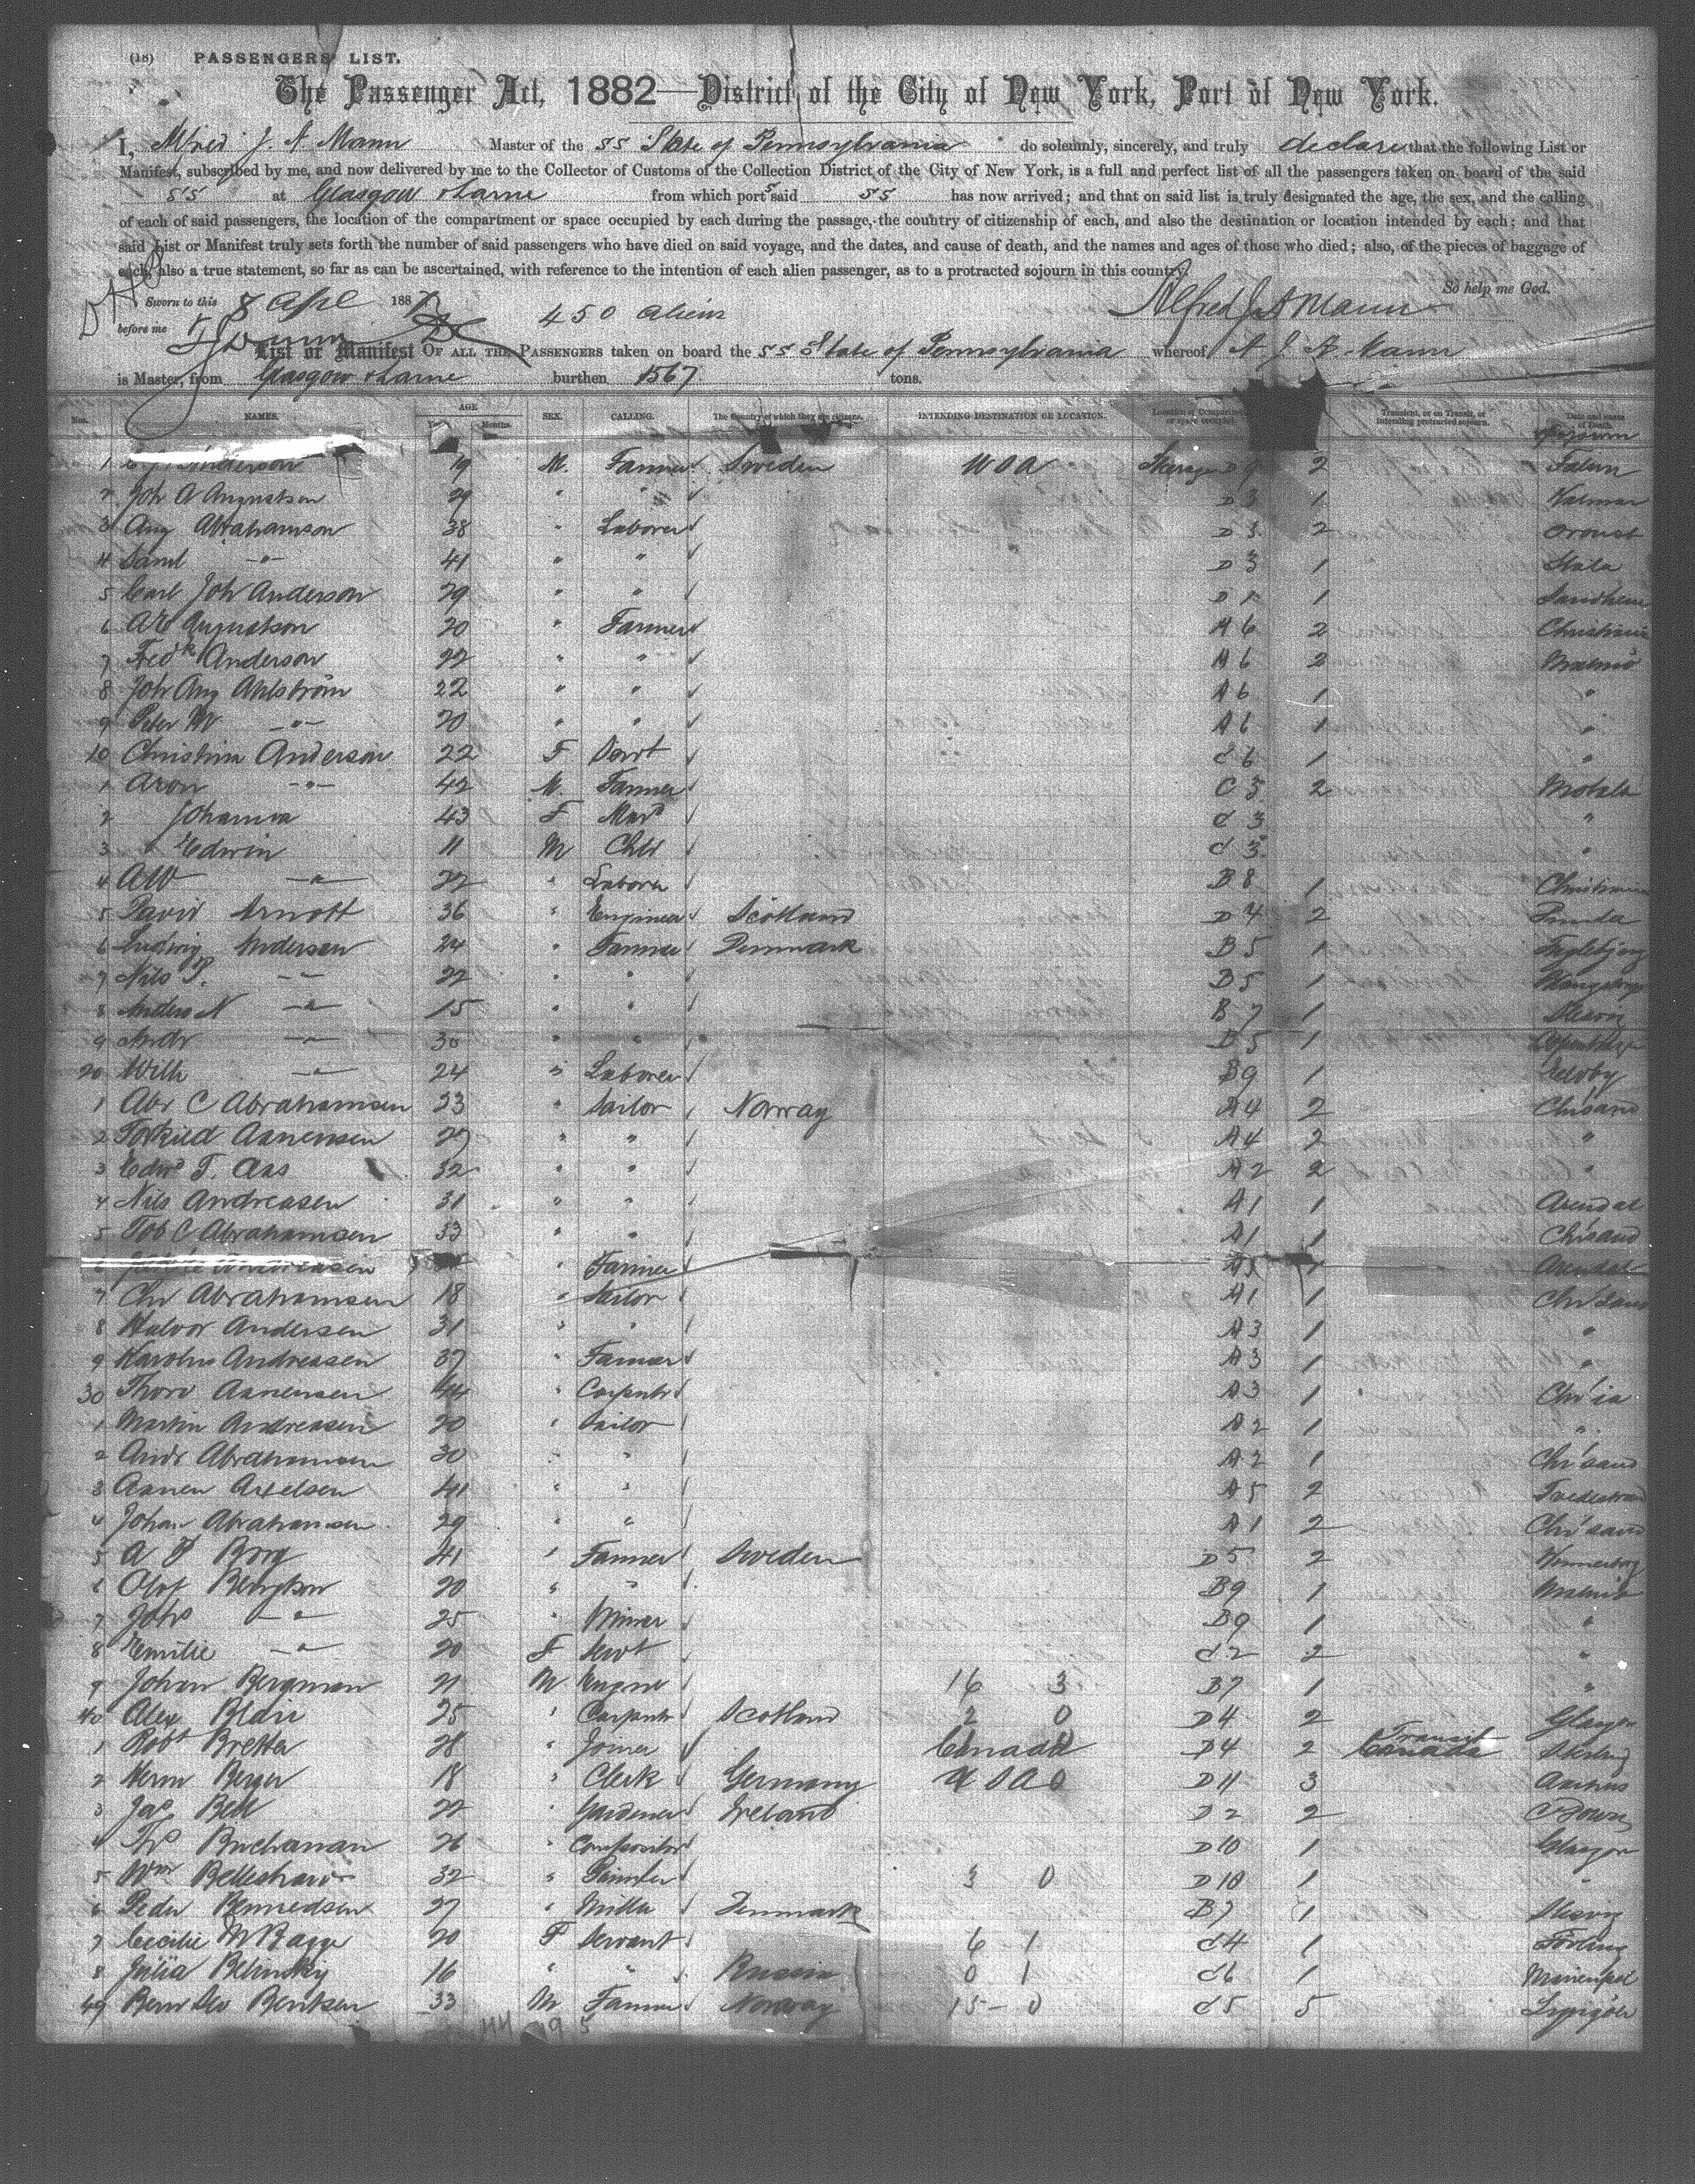 (18) PASSENGERS' LIST.
The Passenger Act, 1882—District of the City of New York, Port of New York.
I, Alfred J. A. Mann Master of the SS State of Pennsylvania do solemnly, sincerely, and truly declare that the following List or
Manifest, subscribed by me, and now delivered by me to the Collector of Customs of the Collection District of the City of New York, is a full and perfect list of all the passengers taken on board of the said
SS at Glasgow & Larne from which port s said SS has now arrived; and that on said list is truly designated the age, the sex, and the calling
of each of said passengers, the location of the compartment or space occupied by each during the passage, the country of citizenship of each, and also the destination or location intended by each; and that
said List or Manifest truly sets forth the number of said passengers who have died on said voyage, and the dates, and cause of death, and the names and ages of those who died; also, of the pieces of baggage of
each, also a true statement, so far as can be ascertained, with reference to the intention of each alien passenger, as to a protracted sojourn in this country.
So help me God.
Sworn to this 8 Apl 188
before me 450 aliens Alfred J A Mann
List or Manifest OF ALL THE PASSENGERS taken on board the SS State of Pennsylvania whereof A J A Mann
is Master, from Glasgow & Larne burthen 1567 tons.
Nos. NAMES. AGE Years. Months. SEX. CALLING. The Country of which they are citizens. INTENDING DESTINATION OR LOCATION. Location of Compartment or space occupied. Transient, or on Transit, or intending protracted sojourn. Date and cause of Death.
1 Anderson 19 M. Farmer Sweden USA Steerage D 9 2 Falun
2 Joh A Augustson 29 " " D 3 1 Kalmar
3 Aug Abrahamson 38 " Laborer D 3 2 Oroust
4 Saml -"- 41 " " D 3 1 Stala
5 Carl Joh Anderson 29 " " D 1 1 Sandhem
6 Augustson 20 " Farmer A 6 2 Christiania
7 Fredk Anderson 22 " " A 6 2 Malmö
8 Joh Aug Ahlström 22 " " A 6 1 "
9 Peter M -"- 20 " " A 6 1 "
10 Christina Anderson 22 F Servt C 6 1 "
1 Aron -"- 42 M. Farmer C 3 2 Motala
2 Johanna 43 F Mard C 3 "
3 Edwin 11 M Chld C 3 "
4 AW -"- 22 " Laborer B 8 1 Christiania
5 David Arnott 36 " Engineer Scotland D 4 2
6 Ludwig Andersen 24 " Farmer Denmark B 5 1
7 Nils P. -"- 22 " " B 5 1
8 Anders N -"- 15 " " B 7 1 Slesvig
9 Andr -"- 30 " " B 5 1
20 Wilh -"- 24 " Laborer B9 1
1 Abr C Abrahamsen 23 " Sailor Norway A4 2 Ch'sand
2 Torkild Aanensen 27 " " A4 2 "
3 Edwd T. Aas 32 " " A2 2 "
4 Nils Andreasen 31 " " A1 1 Arendal
5 Tob C Abrahamsen 33 " " A1 1 Ch'sand
6 Andreasen " Farmer A3 1 Arendal
7 Chr Abrahamsen 18 " Sailor A1 1 Chr'sand
8 Halvor Andersen 31 " " A3 1 "
9 Karolus Andreasen 37 " Farmer A3 1 "
30 Thorv Aanensen 44 " Carpentr A3 1 Chr'ia
1 Martin Andreasen 20 " Sailor A2 1 "
2 Andr Abrahamsen 30 " " A2 1 Chr'sand
3 Aanen Axelsen 41 " " A5 2 Tvedestrand
4 Johan Abrahamsen 29 " " A1 2 Chr'sand
5 A F Borg 41 " Farmer Sweden D5 2
6 Olof Bengtson 20 " " B9 1 Malmö
7 Johs -"- 25 " Miner B9 1 "
8 Emilie -"- 20 F Servt C2 2 "
9 Johan Bergman 21 M Engnr 16 3 B7 1 "
40 Alex Blair 25 " Carpentr Scotland 2 0 D4 2 Glasgow
1 Robt Bretta 28 " Joiner Canada D4 2 Transit Canada Stirling
2 Herm Berger 18 " Clerk Germany USA 0 D11 3 Aarhus
3 Jas Bell 22 " Gardener Ireland D2 2
4 Ths Buchanan 26 " Compositor D10 1 Glasgow
5 Wm Belleshaw 32 " Painter 3 0 D10 1 "
6 Peder Bennedsen 27 " Miller Denmark B7 1 Slesvig
7 Cecilie M Bagge 20 F Servant 6 1 C4 1
8 Julia Belinskij 16 " " Russia 0 1 C6 1
49 Bentsen 33 M Farmer Norway 15 - 0 C5 5